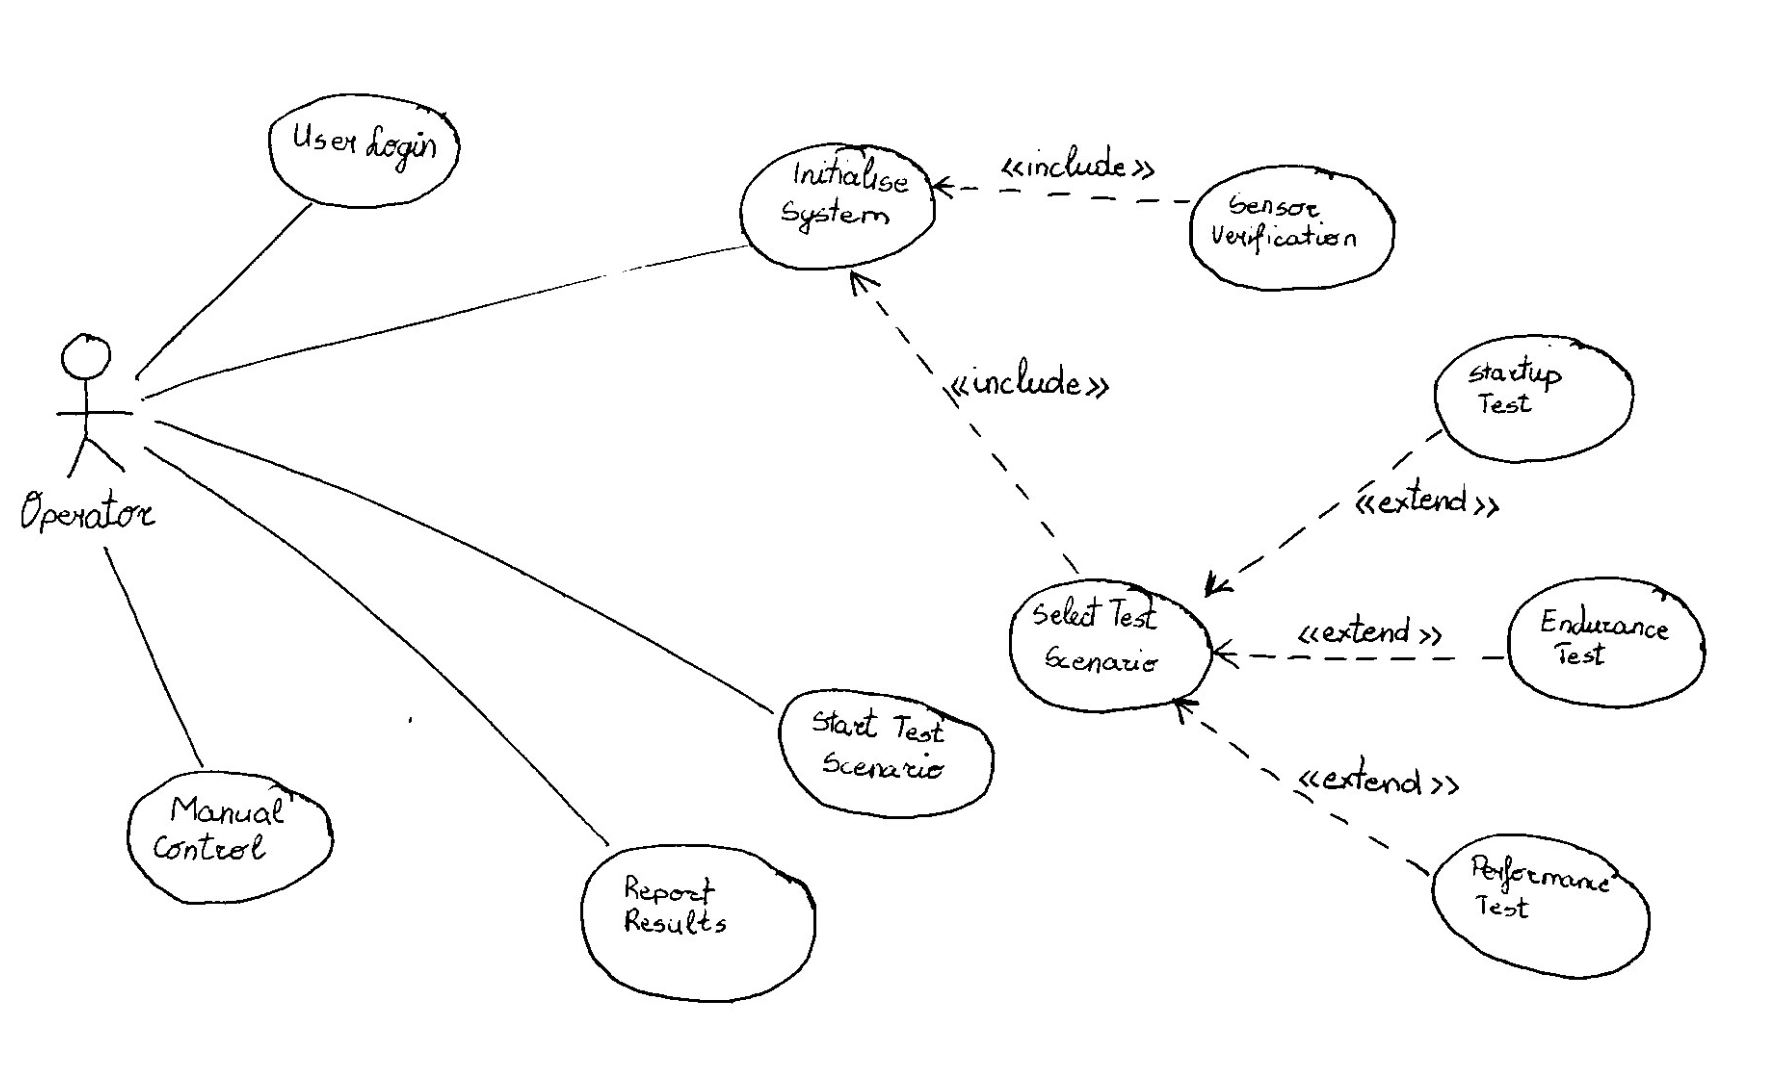 User Login
Initialise
System
«include»
Sensor
Verification
«include»
Startup
Test
«extend»
Operator
Select Test
Scenario
«extend»
Endurance
Test
Start Test
Scenario
«extend»
Manual
Control
Report
Results
Performance
Test